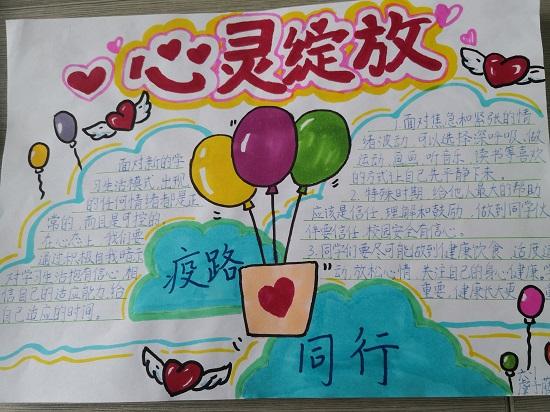 心灵绽放
面对新的学
习生活模式,出现
的任何情绪都是正
常的,而且是可控的.
在心态上,我们要
通过积极自我暗示
对学习生活抱有信心,相
信自己的适应能力,给
自己适应的时间。
疫路
同行
1.面对焦急和紧张的情
绪波动,可以选择深呼吸、做
运动、画画、听音乐、读书等喜欢
的方式让自己先平静下来.
2.特殊时期,给他人最大的帮助
应该是信任、理解和鼓励,做到同学伙
伴要信任,校园安全有信心.
3.同学们要尽可能做到健康饮食,适度运
动,放松心情,关注自己的身心健康
重要,健康长大更